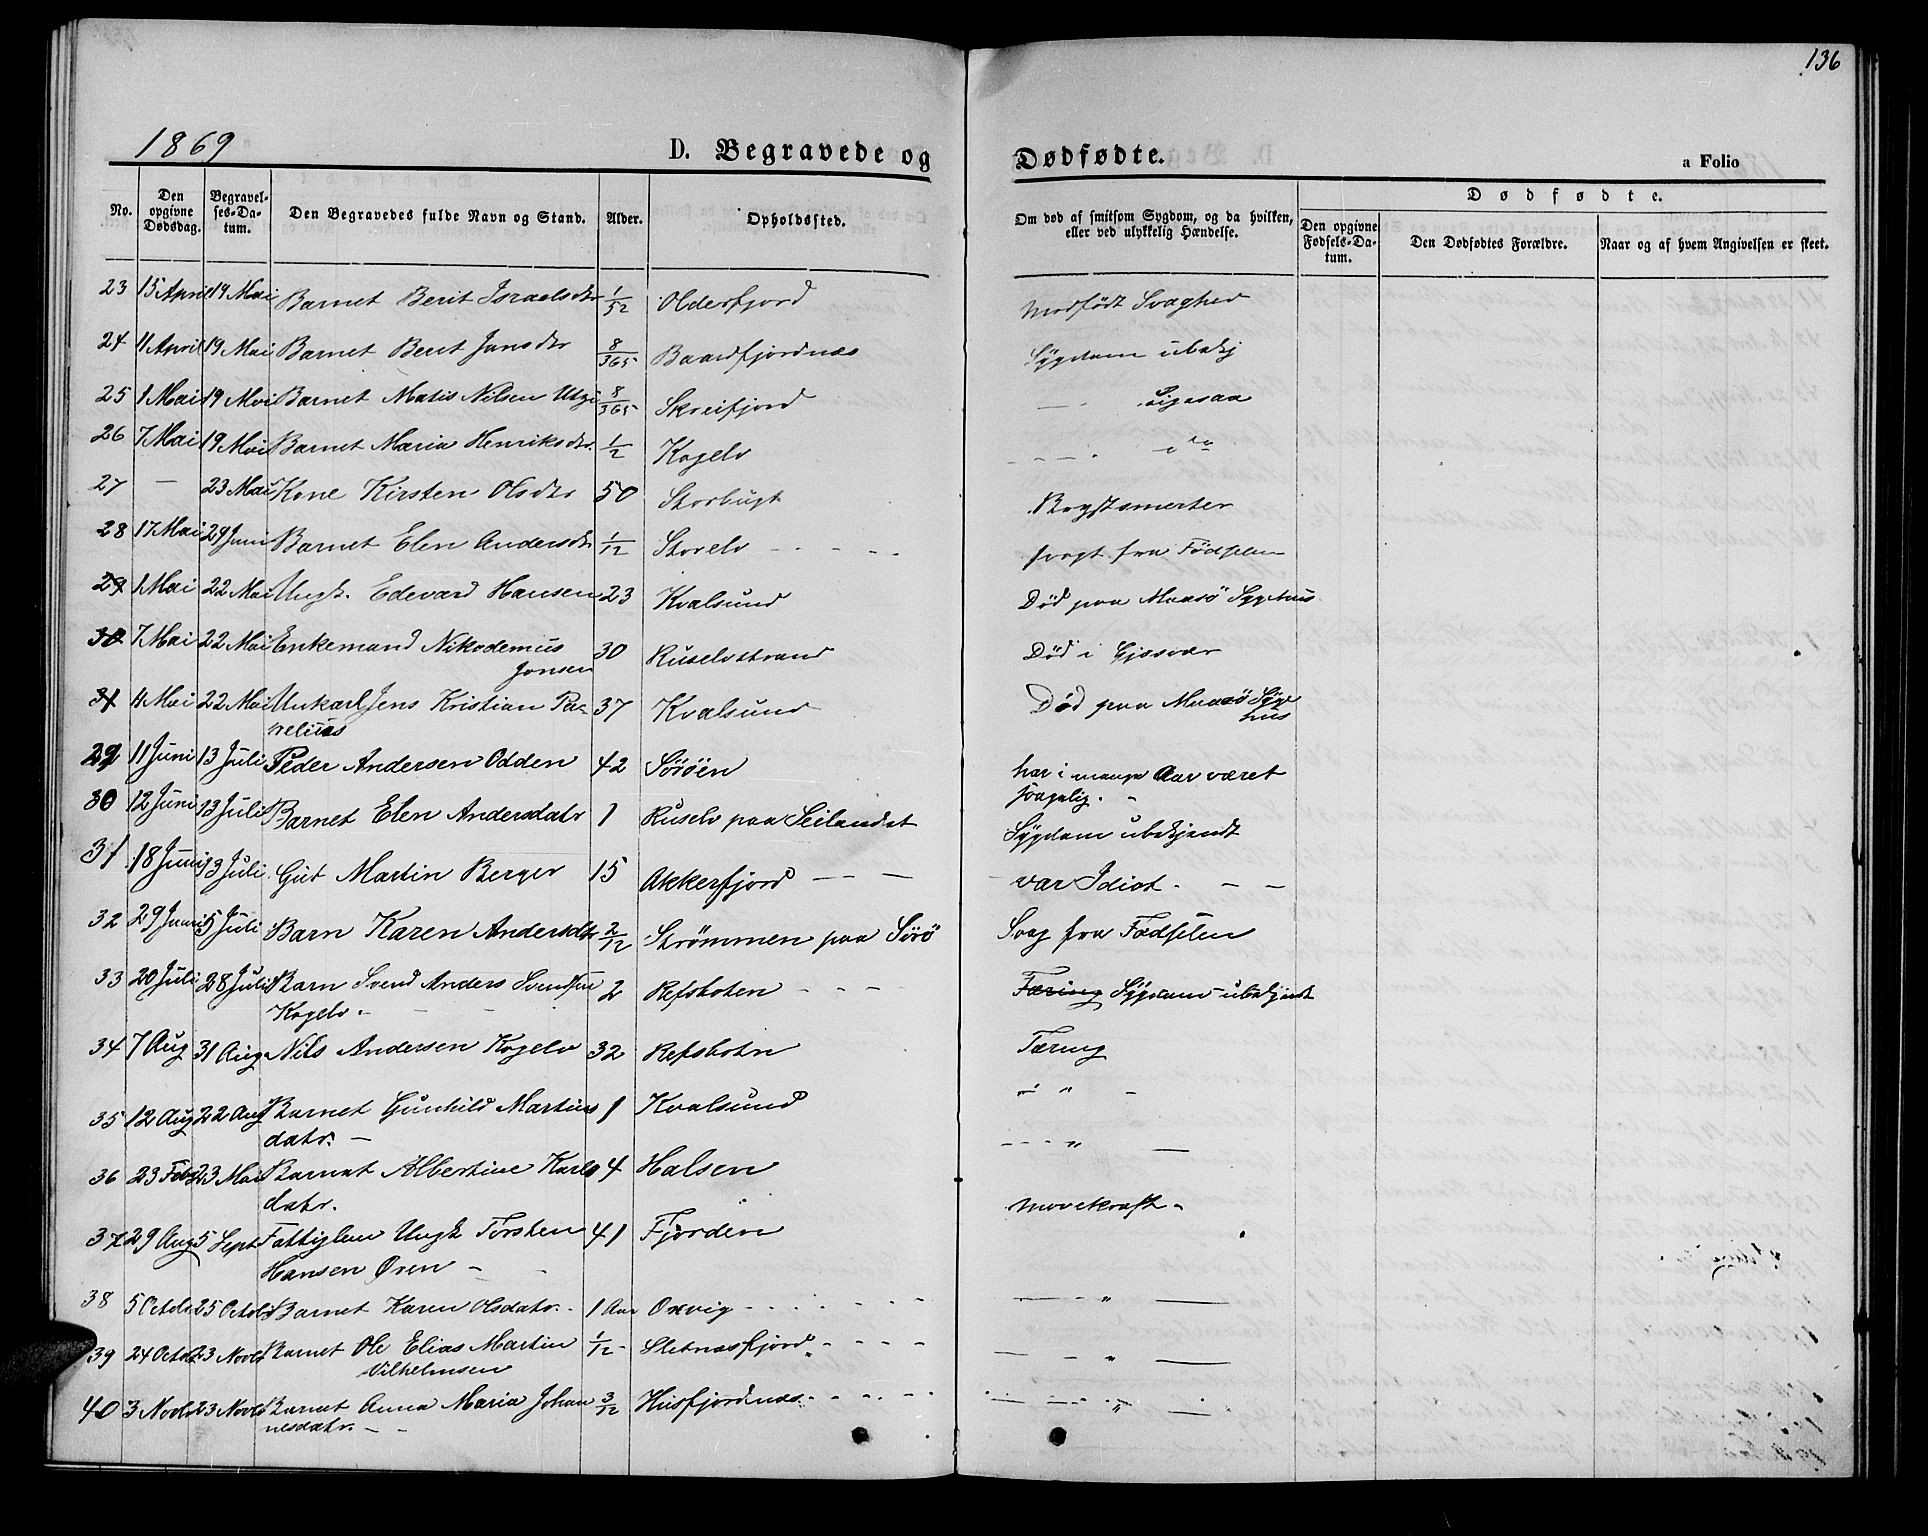 136
1869
D. Begravede og Dødfødte.
a Folio
No.
Den opgivne Dødsdag.
Begravelses-Datum.
Den Begravedes fulde Navn og Stand.
Alder.
Opholdssted.
Om død af smitsom Sygdom, og da hvilken, eller ved ulykkelig Hændelse.
Dødfødte.
Den opgivne Fødsels-Datum.
Den Dødfødtes Forældre.
Naar og af hvem Angivelsen er skeet.
23 15 April 19 Mai Barnet Berit Israelsdtr 1/52 Olderfjord Medfödt Svaghed
24 11 April 19 Mai Barnet Berit Jansdtr 8/365 Baardfjordnæs Sygdom ubekj
25 1 Mai 19 Mai Barnet Matis Nilsen Utsi 8/365 Skreifjord — Ligesaa
26 7 Mai 19 Mai Barnet Maria Henriksdtr. 1/2 Kogelv
27 — 23 Mai Kone Kirsten Olsdtr 50 Storbugt Brystsmerter
28 17 Mai 29 Juni Barnet Elen Andersdtr 1/12 Storelv - - - - svagt fra Födselen
29 1 Mai 22 Mai Ungk. Edevard Hansen 23 Kvalsund Död paa Maasö Sygehus
30 7 Mai 22 Mai Enkemand Nikodemus
Jonsen 30 Ruselvstrand Död i Gjesvær
31 4 Mai 22 Mai Unkarl Jens Kristian Pa-
velius 37 Kvalsund Död paa Maasö Syge
hus
29 11 Juni 13 Juli Peder Andersen Odden 42 Söröen har i mange Aar været
svagelig.
30 12 Juni 13 Juli Barnet Elen Andersdatr 1 Ruselv paa Seilandet Sygdom ubekjendt
31 18 Juni 13 Juli Gut Martin Berger 15 Akkerfjord — — var Idiot. — —
32 29 Juni 5 Juli Barn Karen Andersdtr 2/12 Strömmen paa Sörö Svag fra Fødselen
33 20 Juli 28 Juli Barn Svend Anders Svendsen
Kogelv - 2 Refsboten - - - Tæring Sygdom ubekjendt
34 7 Aug 31 Aug Nils Andersen Kogelv 32 Refsbotn Tæring
35 12 Aug 22 Aug Barnet Gunhild Martins
datr. — 1 Kvalsund - " -
36 23 Feb 23 Mai Barnet Albertine Karls
datr. 4 Halsen - - - " —
37 29 Aug 5 Sept Fattiglem Ungk Torsten
Hansen Øren - 41 Fjorden
38 5 Octob 25 Octob Barnet Karen Olsdatr. 1 Aar Oxvig - - - — " —
39 24 Octob 23 Novbr Barnet Ole Elias Martin
Vilhelmsen 1/12 Sletnæsfjord - - - - — " —
40 3 Novbr 23 Novbr Barnet Anna Maria Johan
nesdatr. - - 3/12 Husfjordnæs - - - - — " —